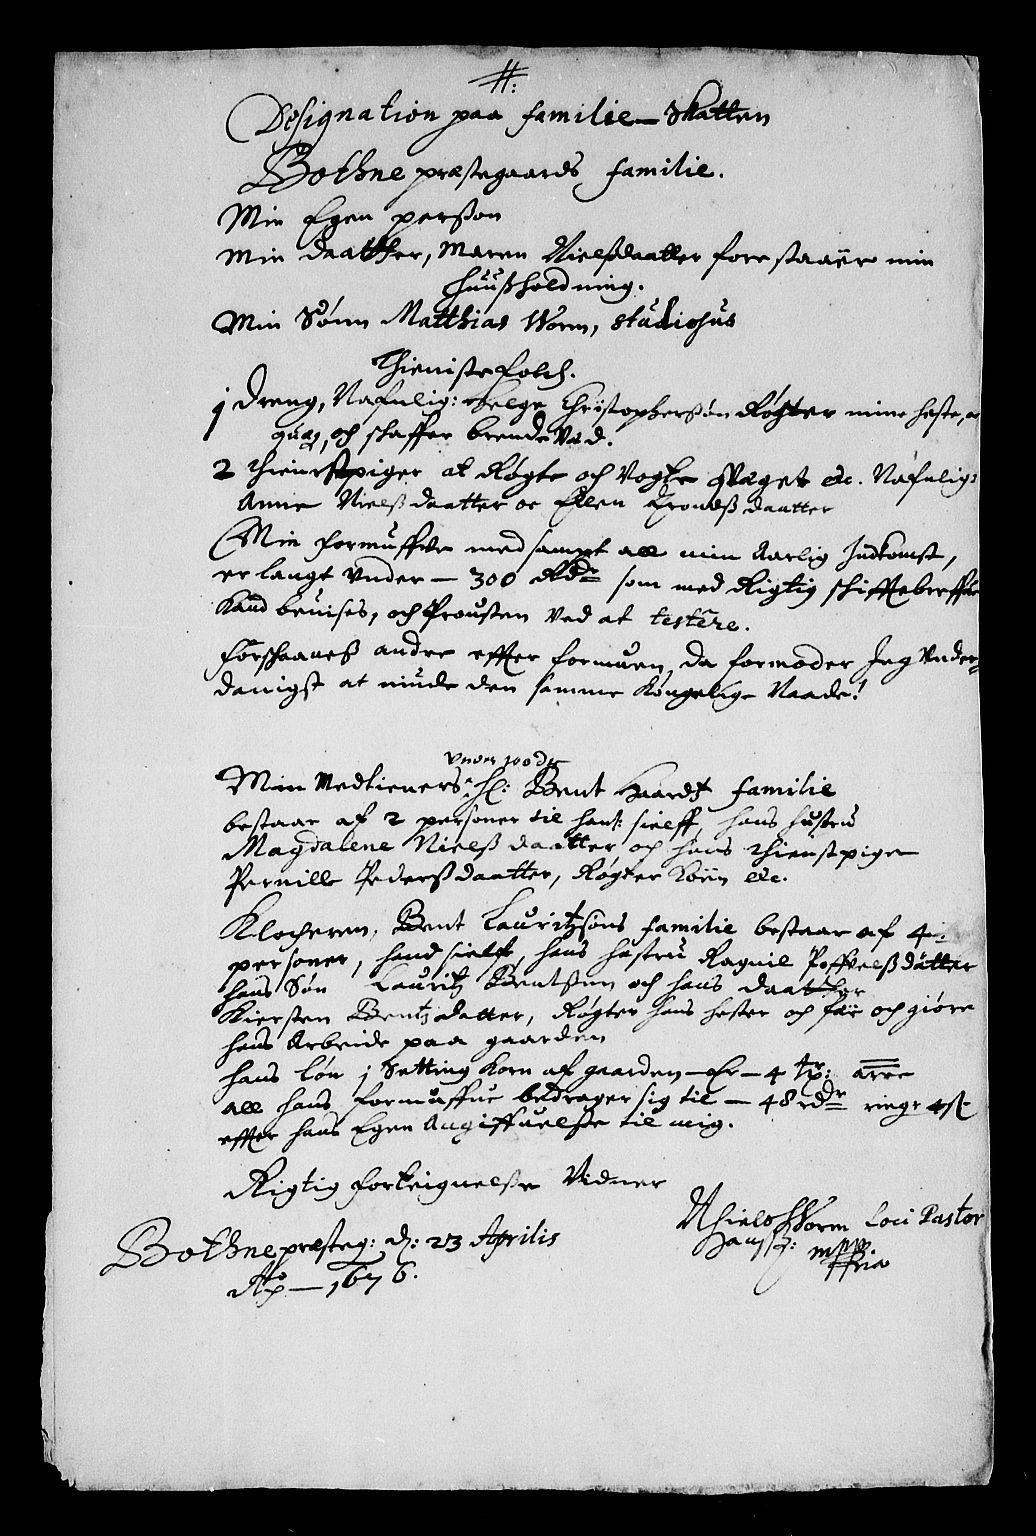 Designation paa familie-Skatten
Bothne præstegaards familie.
Min Egen persson
Min daatther, Maren Nielsdaatter forestaaer min
huusholdning.
Min Sønn Matthias Worm, studiosus
Thienistefolch.
1 Dreng, Nafnlig: Helge Christopherssøn Røgter mine heste, oc
quæg, och skaffer brende Ved.
2 thienistpiger at Røgte och Vogte qvæget etc. Nafnlig:
Anne Nielsdaatter oc Ellen Trondsdaatter
Min formuffve med sampt all min Aarlig Indkomst,
er langt Vnder - 300 Rdr som med Rigtig skifftebreffue
Kand beuises, och Prousten Ved at testere.
Forskaanes andre effter formuen, da formoder Jeg Vnder-
danigst at niude den samme Kongelig Naade!
Vnder 100 dr
Min Medtieners, Hl: Bent Gaards familie
bestaar af 2 personer til hans: sielff, hans hustru
Magdalene Nielsdaatter och hans thienistpige
Pernille Pedersdaatter, Røgter Køen etc.
Klocheren, Bent Lauritzsøns familie bestaar af 4
personer, hand sielff, hans hustru Ragnil Poffvelsdatter
hans Søn Lauritz Bentssen och hans daatther
Kiersten Bentzdatter, Røgter hans hester och fæe och giøre
hans Arbeide paa gaarden
hans løn 1 Setting Korn af gaarden - Er - 4 tr:
all hans formuffue bedrager sig til - 48 rdr ringe 4 sk
effter hans Egen Angiffuelsse til mig.
Rigtig forteignelsse Vidner
Nhiels Worm Loci Pastor
Hanss: mppria
Bothne præsteg: d: 23 Aprilis
Ao - 1676.